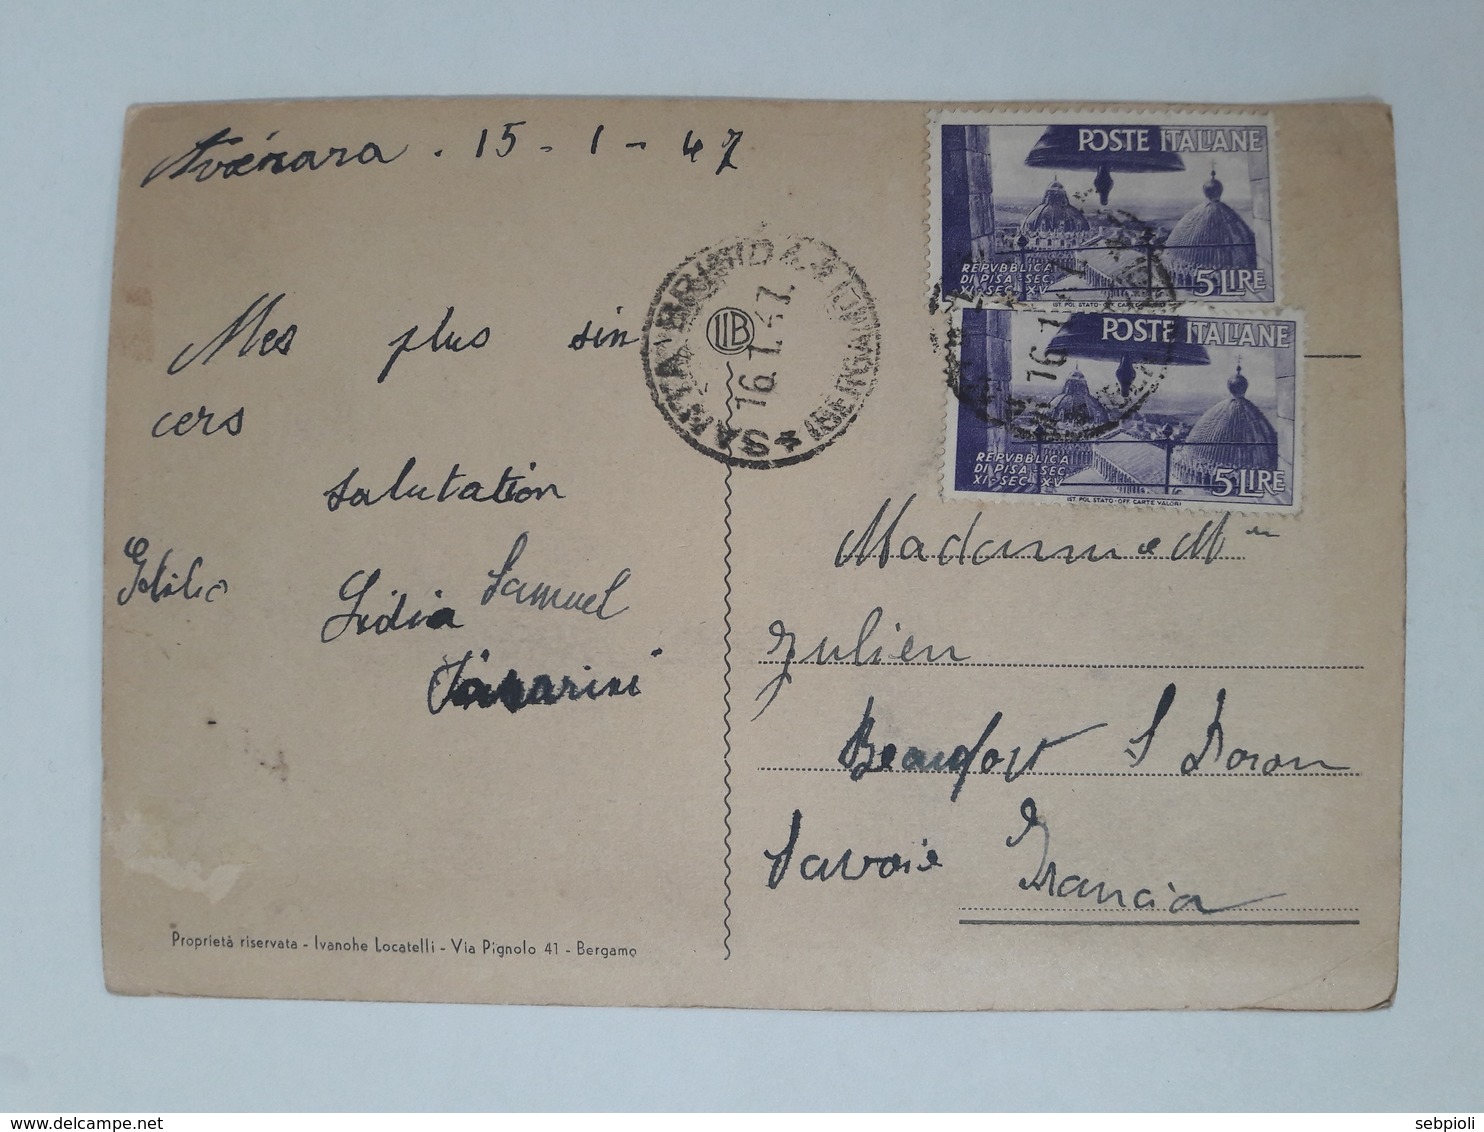 15 - 1 - 47
Mes plus sin
cers
salutation
Samuel
Lidia
Proprietà riservata - Ivanohe Locatelli - Via Pignolo 41 - Bergamo
SANTA BRIGIDA
(BERGAMO)
16.1.47.
ILB
POSTE ITALIANE
REPVBBLICA
DI PISA - SEC.
XI - SEC. XV
5 LIRE
IST. POL. STATO - OFF. CARTE VALORI
POSTE ITALIANE
REPVBBLICA
DI PISA - SEC.
XI - SEC. XV
5 LIRE
IST. POL. STATO - OFF. CARTE VALORI
16.1.47
Madame M
Julien
Beaufort S Doron
Savoie Francia
sebpioli